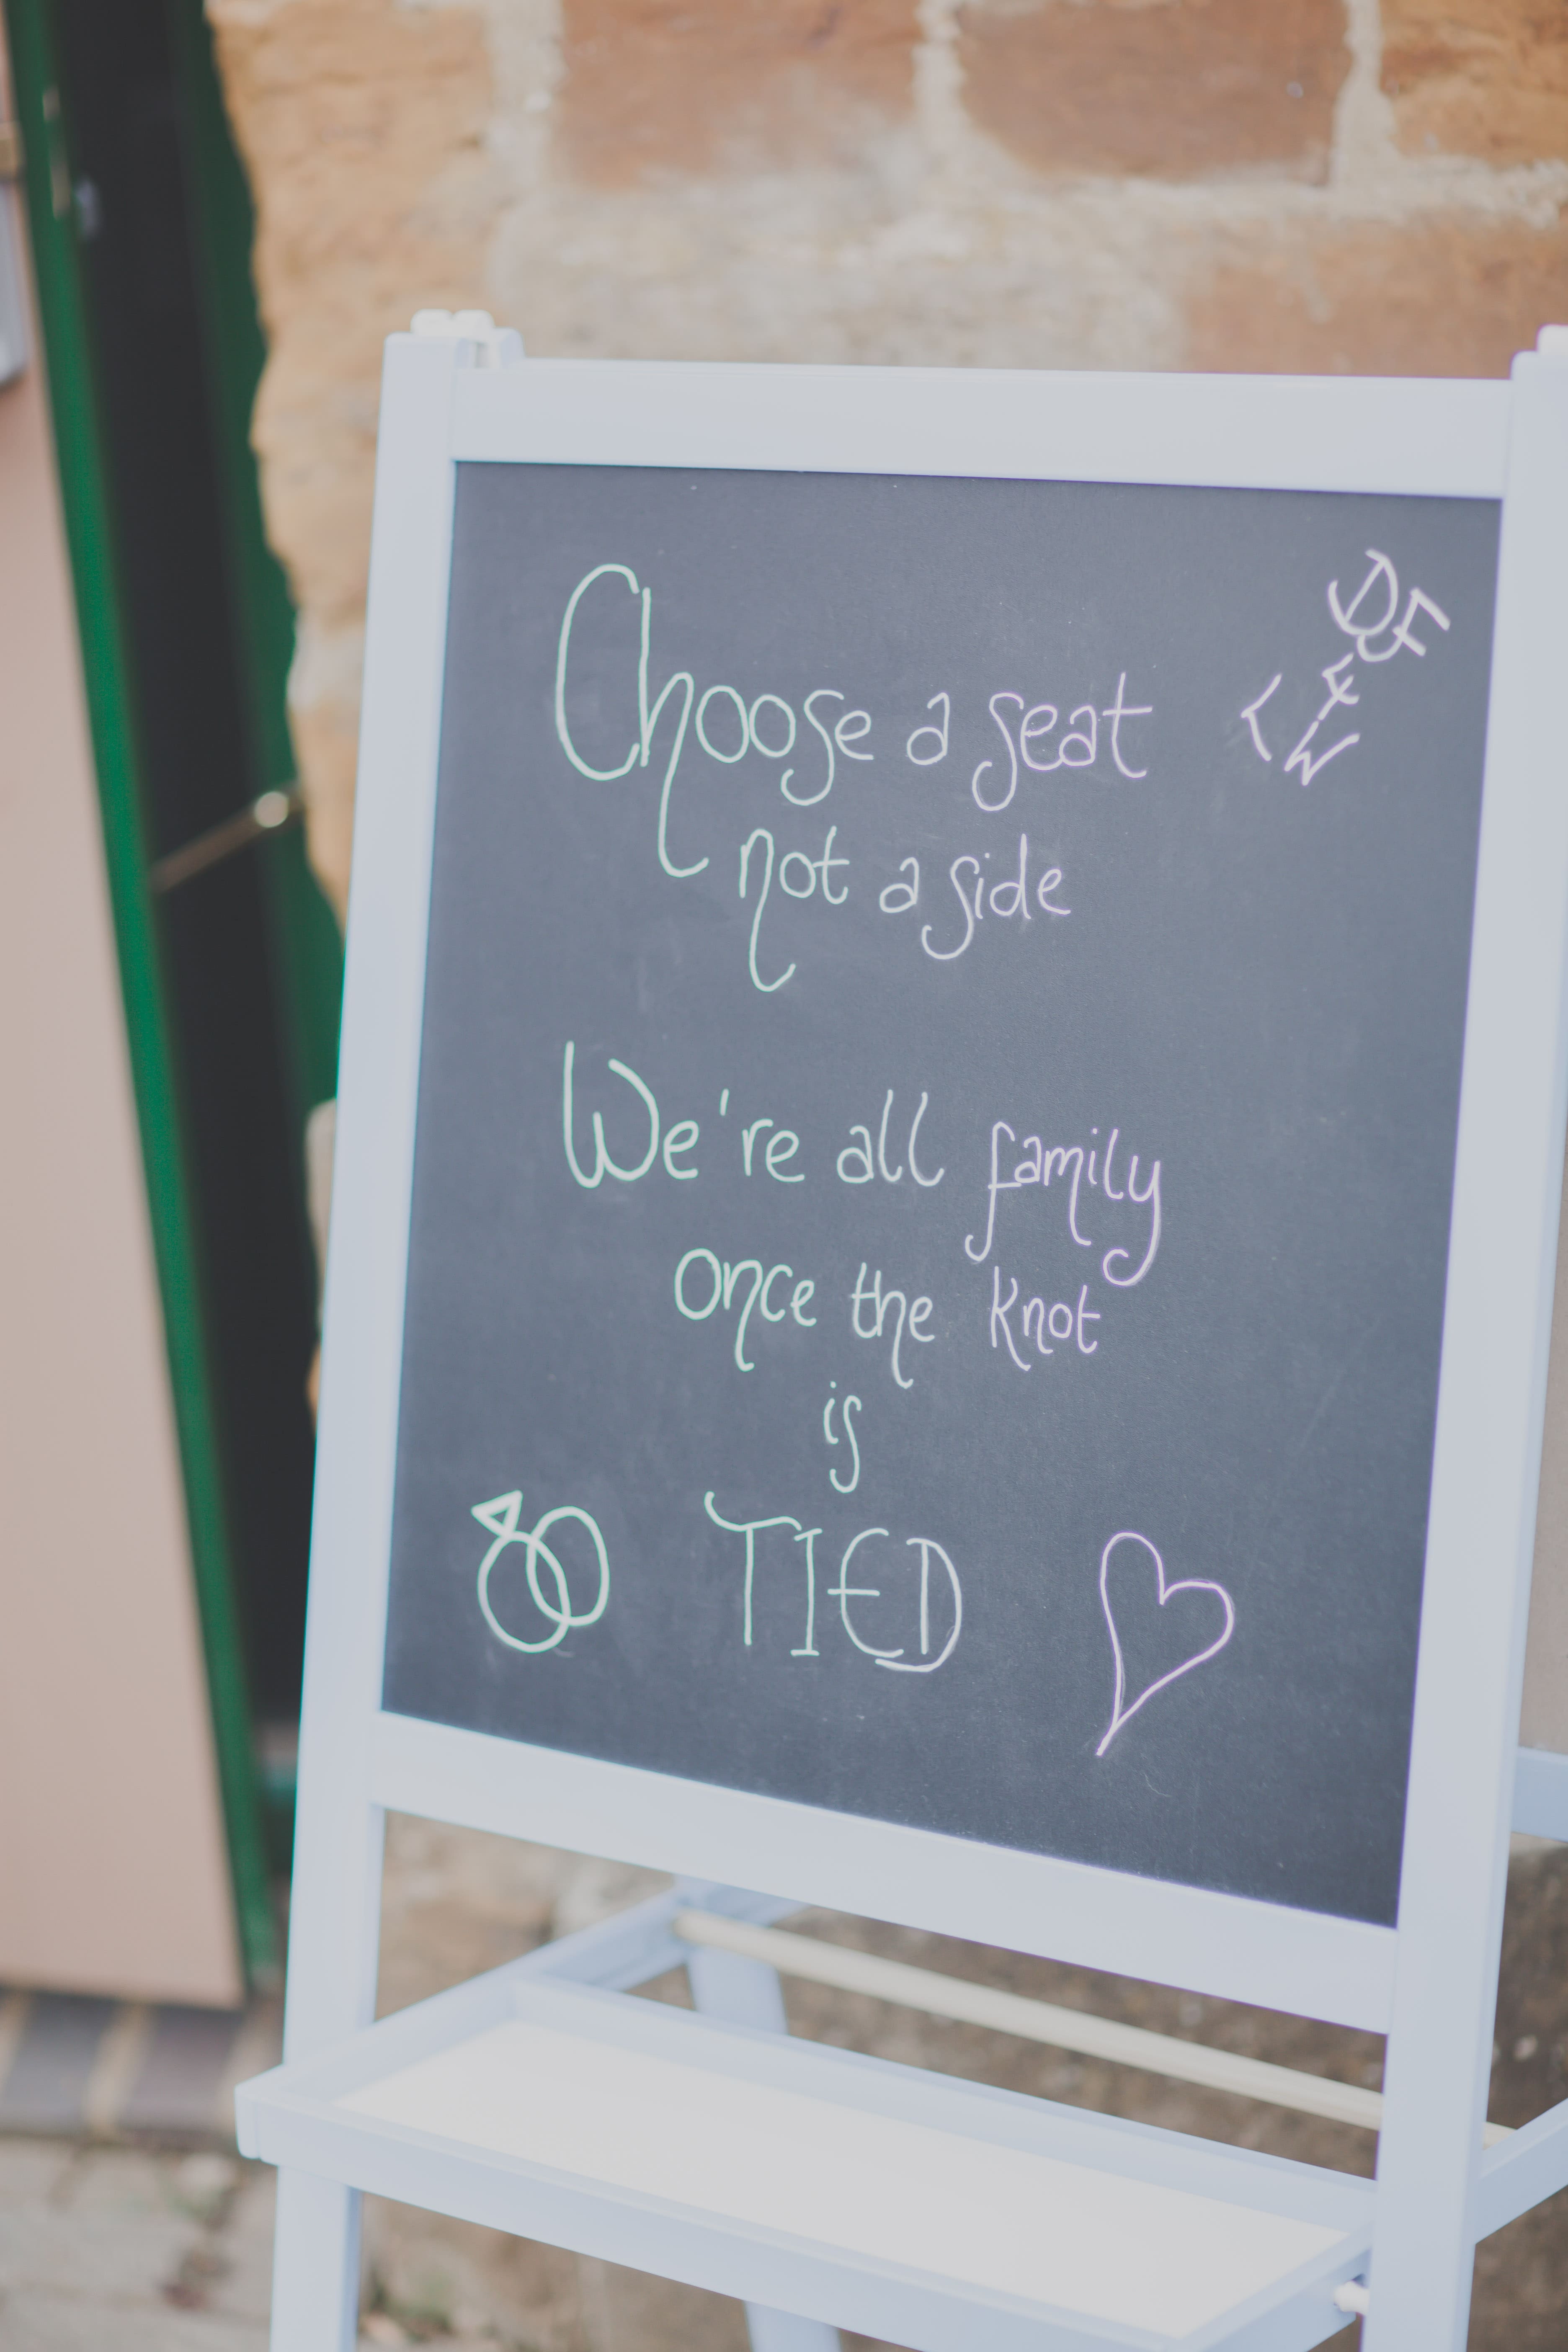 Choose a seat
not a side
We're all family
once the knot
is
TIED